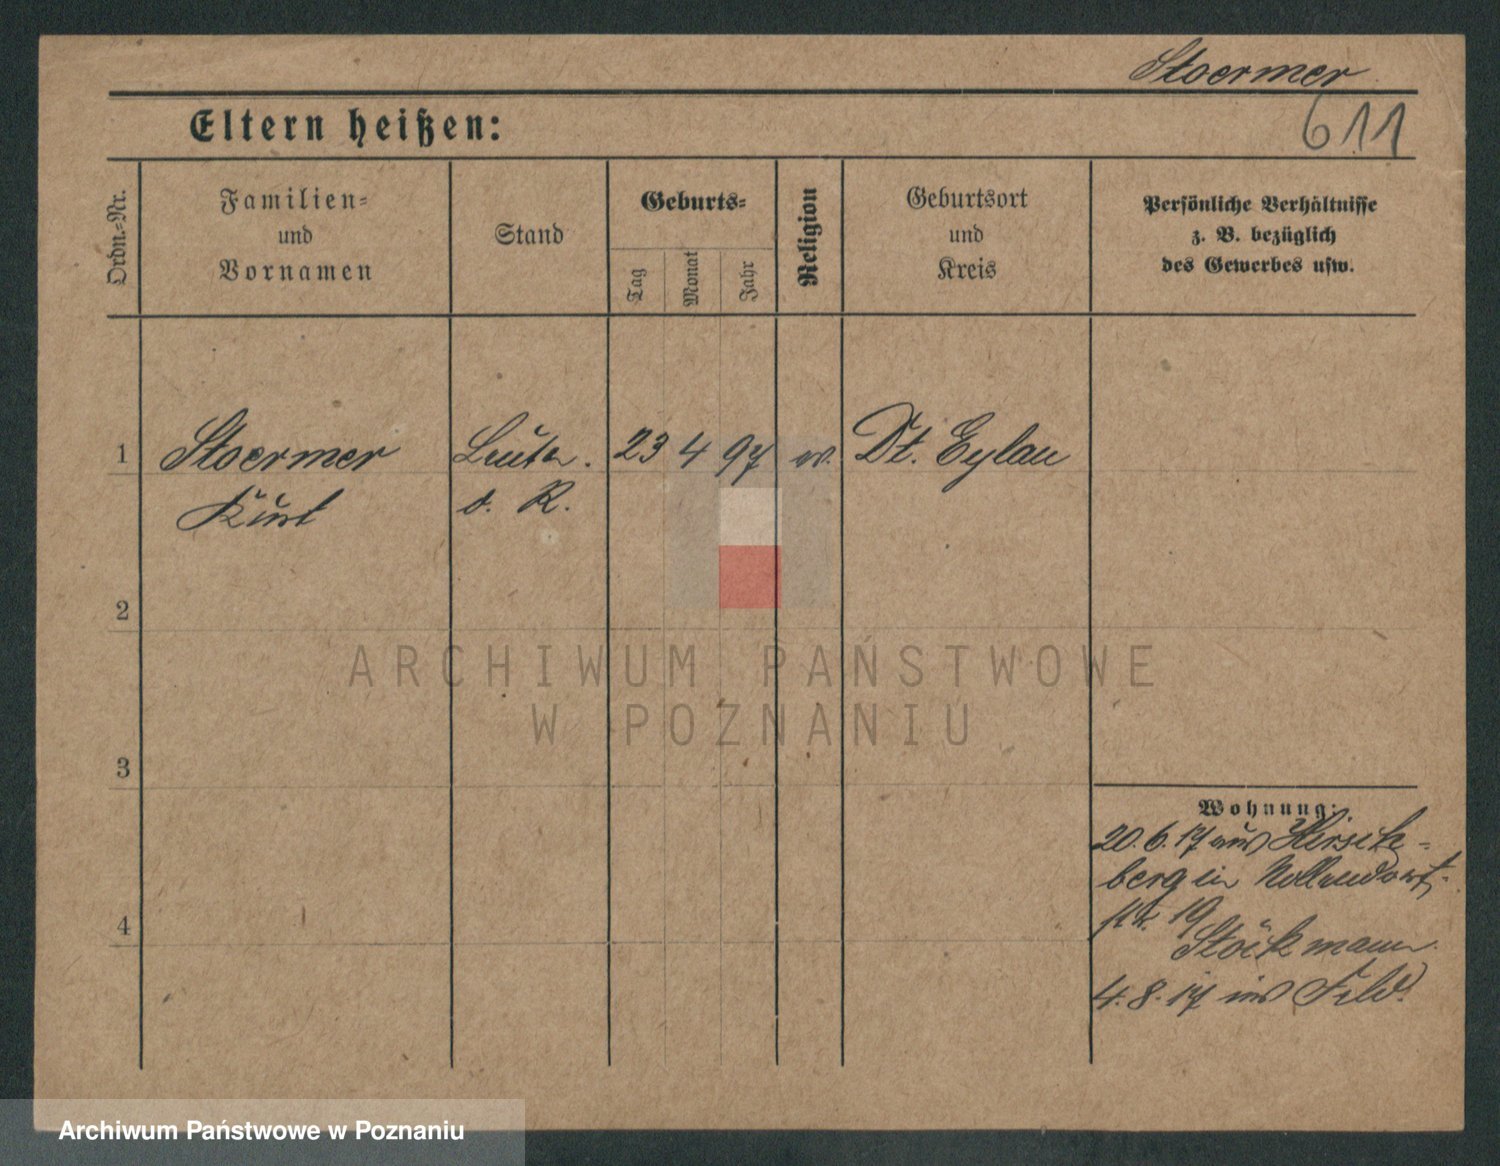 Stoermer
611
Eltern heißen:
Ordn.-Nr.
Familien-
und
Vornamen
Stand
Geburts-
Tag
Monat
Jahr
Religion
Geburtsort
und
Kreis
Persönliche Verhältnisse
z. B. bezüglich
des Gewerbes usw.
1 Stoermer Leutn. 23 4 97 ev. Dt. Eylau
Kurt d. R.
2
3
4
ARCHIWUM PAŃSTWOWE
W POZNANIU
Wohnung:
20.6.17 aus Hirsch-
berg in Nollendorf-
str. 19
Stöckmann
4.8.17 ins Feld.
Archiwum Państwowe w Poznaniu